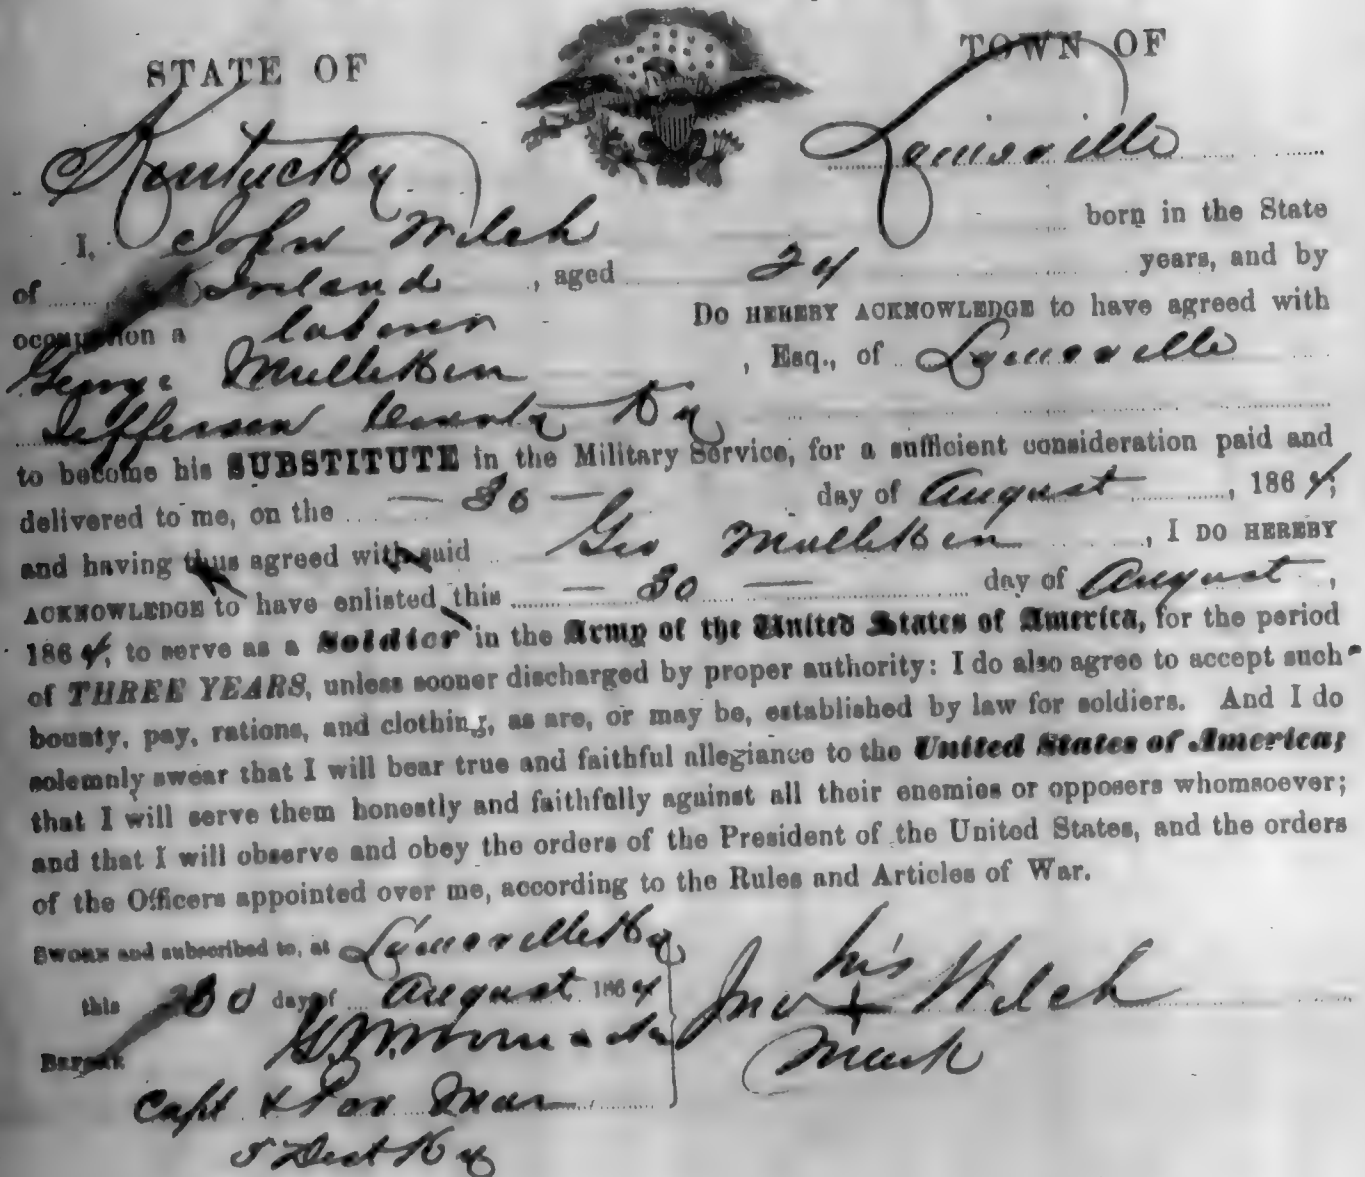 STATE OF
TOWN OF
Kentucky
Louisville
I, John Welch born in the State
of Ireland, aged 24 years, and by
occupation a laborer Do HEREBY ACKNOWLEDGE to have agreed with
George Mulliken, Esq., of Louisville
Jefferson County Ky
to become his SUBSTITUTE in the Military Service, for a sufficient consideration paid and
delivered to me, on the — 30 — day of August, 1864;
and having thus agreed with said Geo Mulliken, I DO HEREBY
ACKNOWLEDGE to have enlisted this — 30 — day of August,
1864, to serve as a Soldier in the Army of the United States of America, for the period
of THREE YEARS, unless sooner discharged by proper authority: I do also agree to accept such
bounty, pay, rations, and clothing, as are, or may be, established by law for soldiers. And I do
solemnly swear that I will bear true and faithful allegiance to the United States of America;
that I will serve them honestly and faithfully against all their enemies or opposers whomsoever;
and that I will observe and obey the orders of the President of the United States, and the orders
of the Officers appointed over me, according to the Rules and Articles of War.
SWORN and subscribed to, at Louisville Ky
this 30 day of August 1864
his
Jno + Welch
mark
BEFORE
Capt & Pro Mar
5 Dist Ky